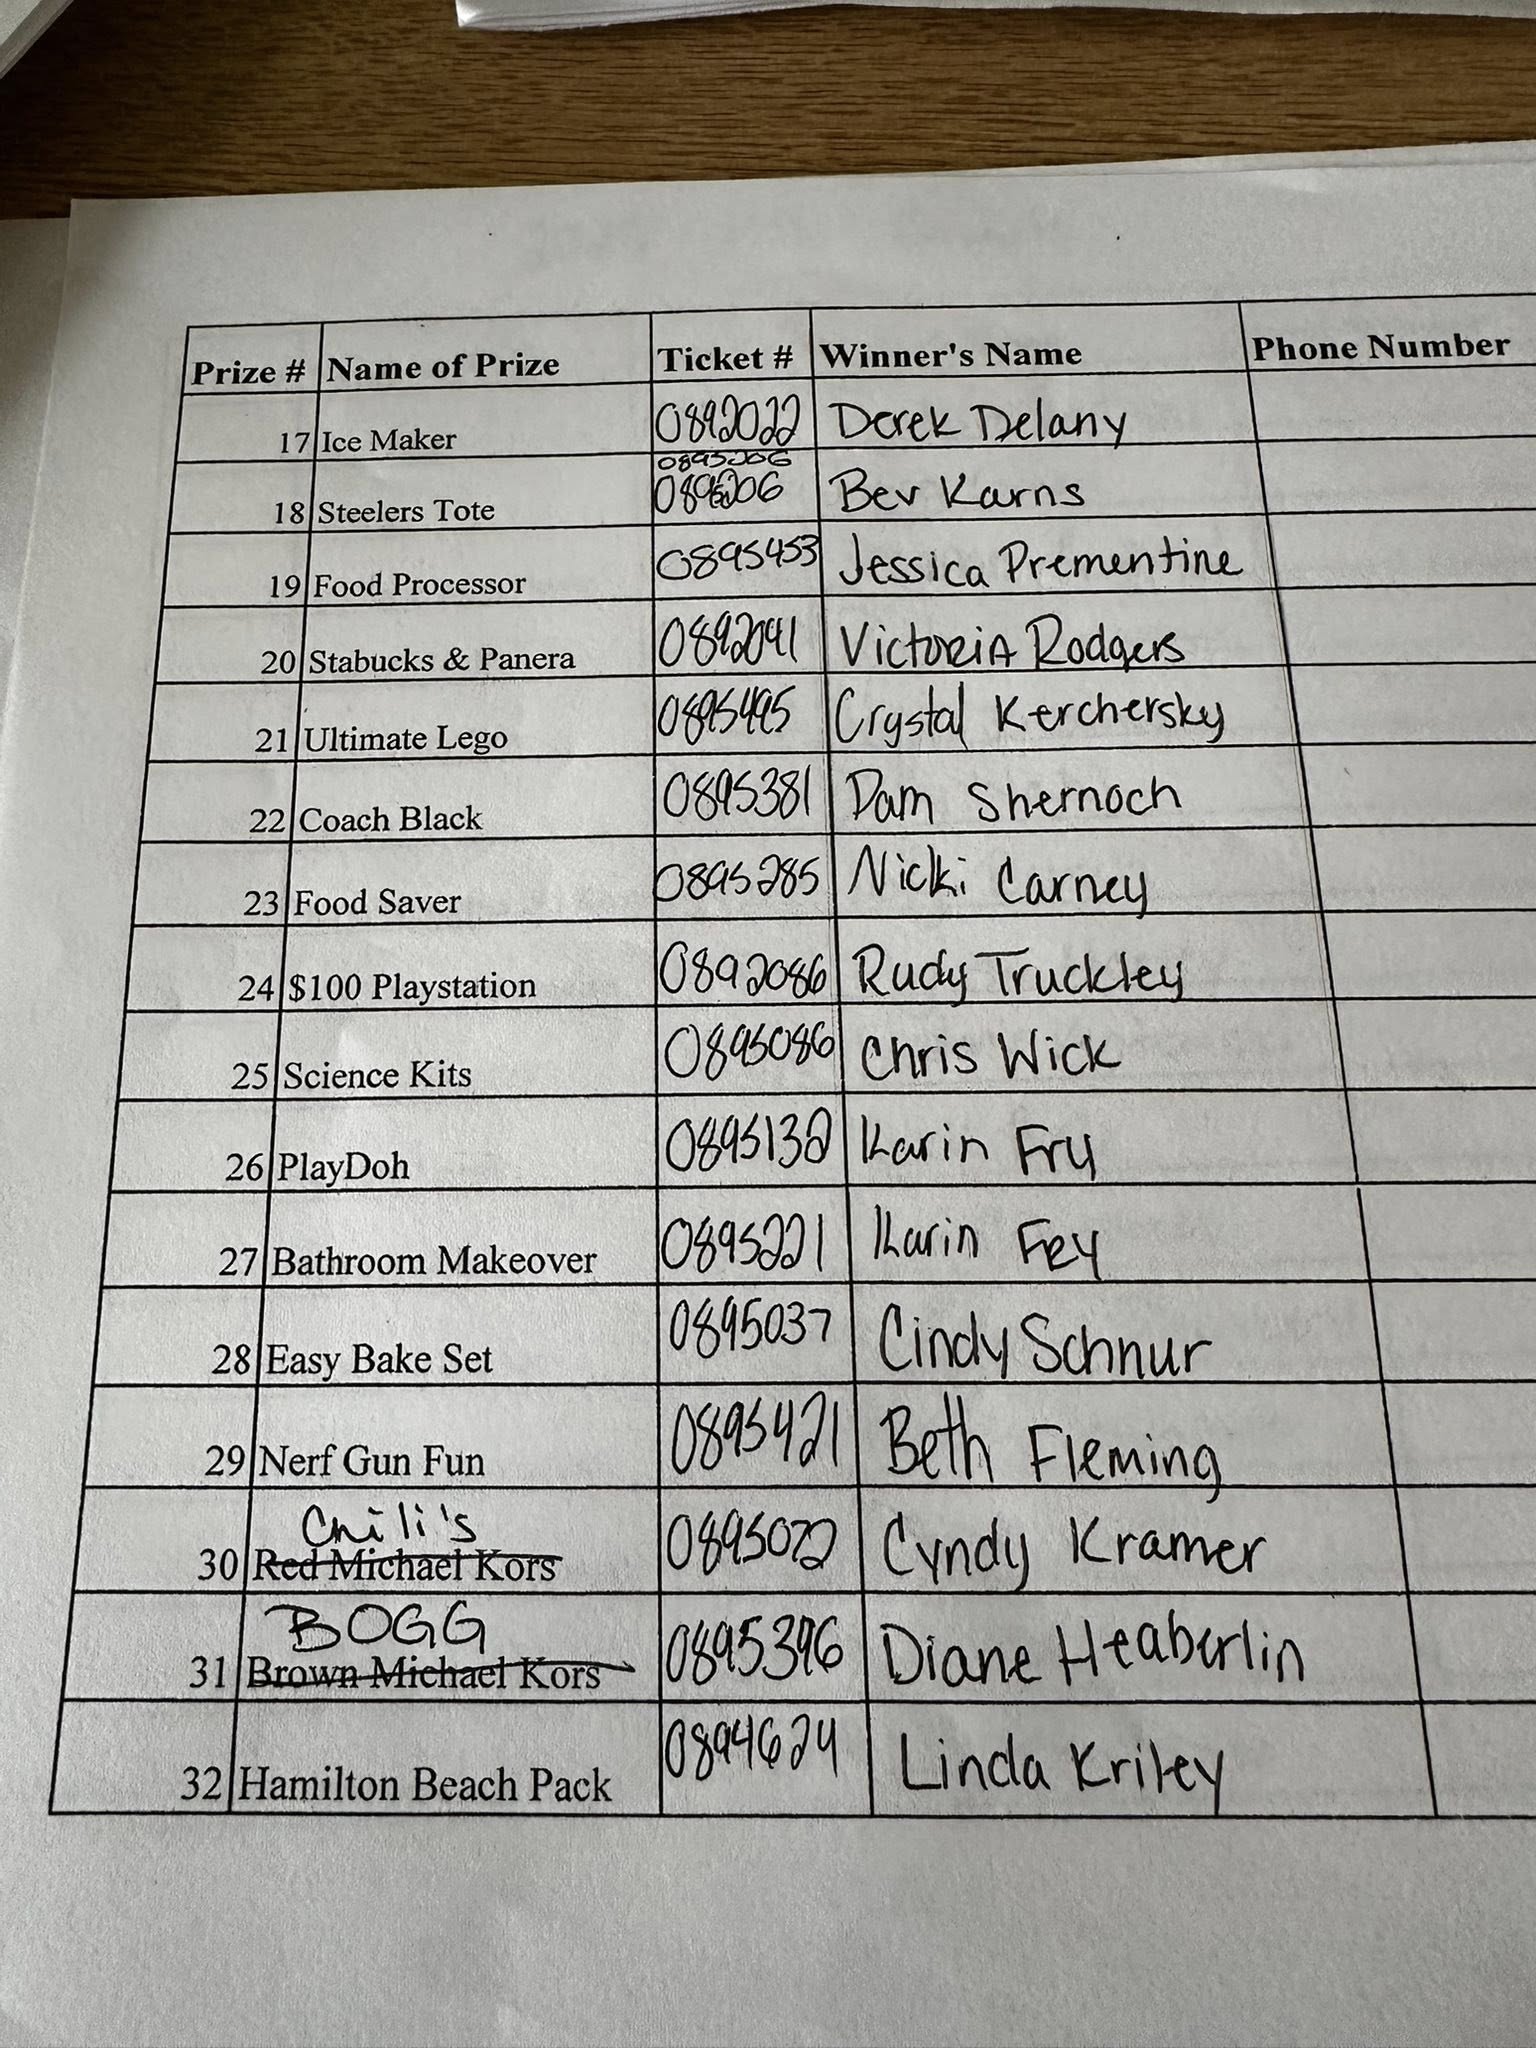 Prize # Name of Prize Ticket # Winner's Name Phone Number
17 Ice Maker 0892022 Derek Delany
0895206
18 Steelers Tote 0895206 Bev Karns
19 Food Processor 0895453 Jessica Prementine
20 Stabucks & Panera 0892091 Victoria Rodgers
21 Ultimate Lego 0895495 Crystal Kerchersky
22 Coach Black 0895381 Pam Shernoch
23 Food Saver 0895285 Nicki Carney
24 $100 Playstation 0892086 Rudy Truckley
25 Science Kits 0895086 Chris Wick
26 PlayDoh 0895132 Karin Fry
27 Bathroom Makeover 0895221 Karin Fry
28 Easy Bake Set 0895037 Cindy Schnur
29 Nerf Gun Fun 0895421 Beth Fleming
Chili's
30 Red Michael Kors 0895072 Cyndy Kramer
BOGG
31 Brown Michael Kors 0895396 Diane Heaberlin
32 Hamilton Beach Pack 0894624 Linda Kriley